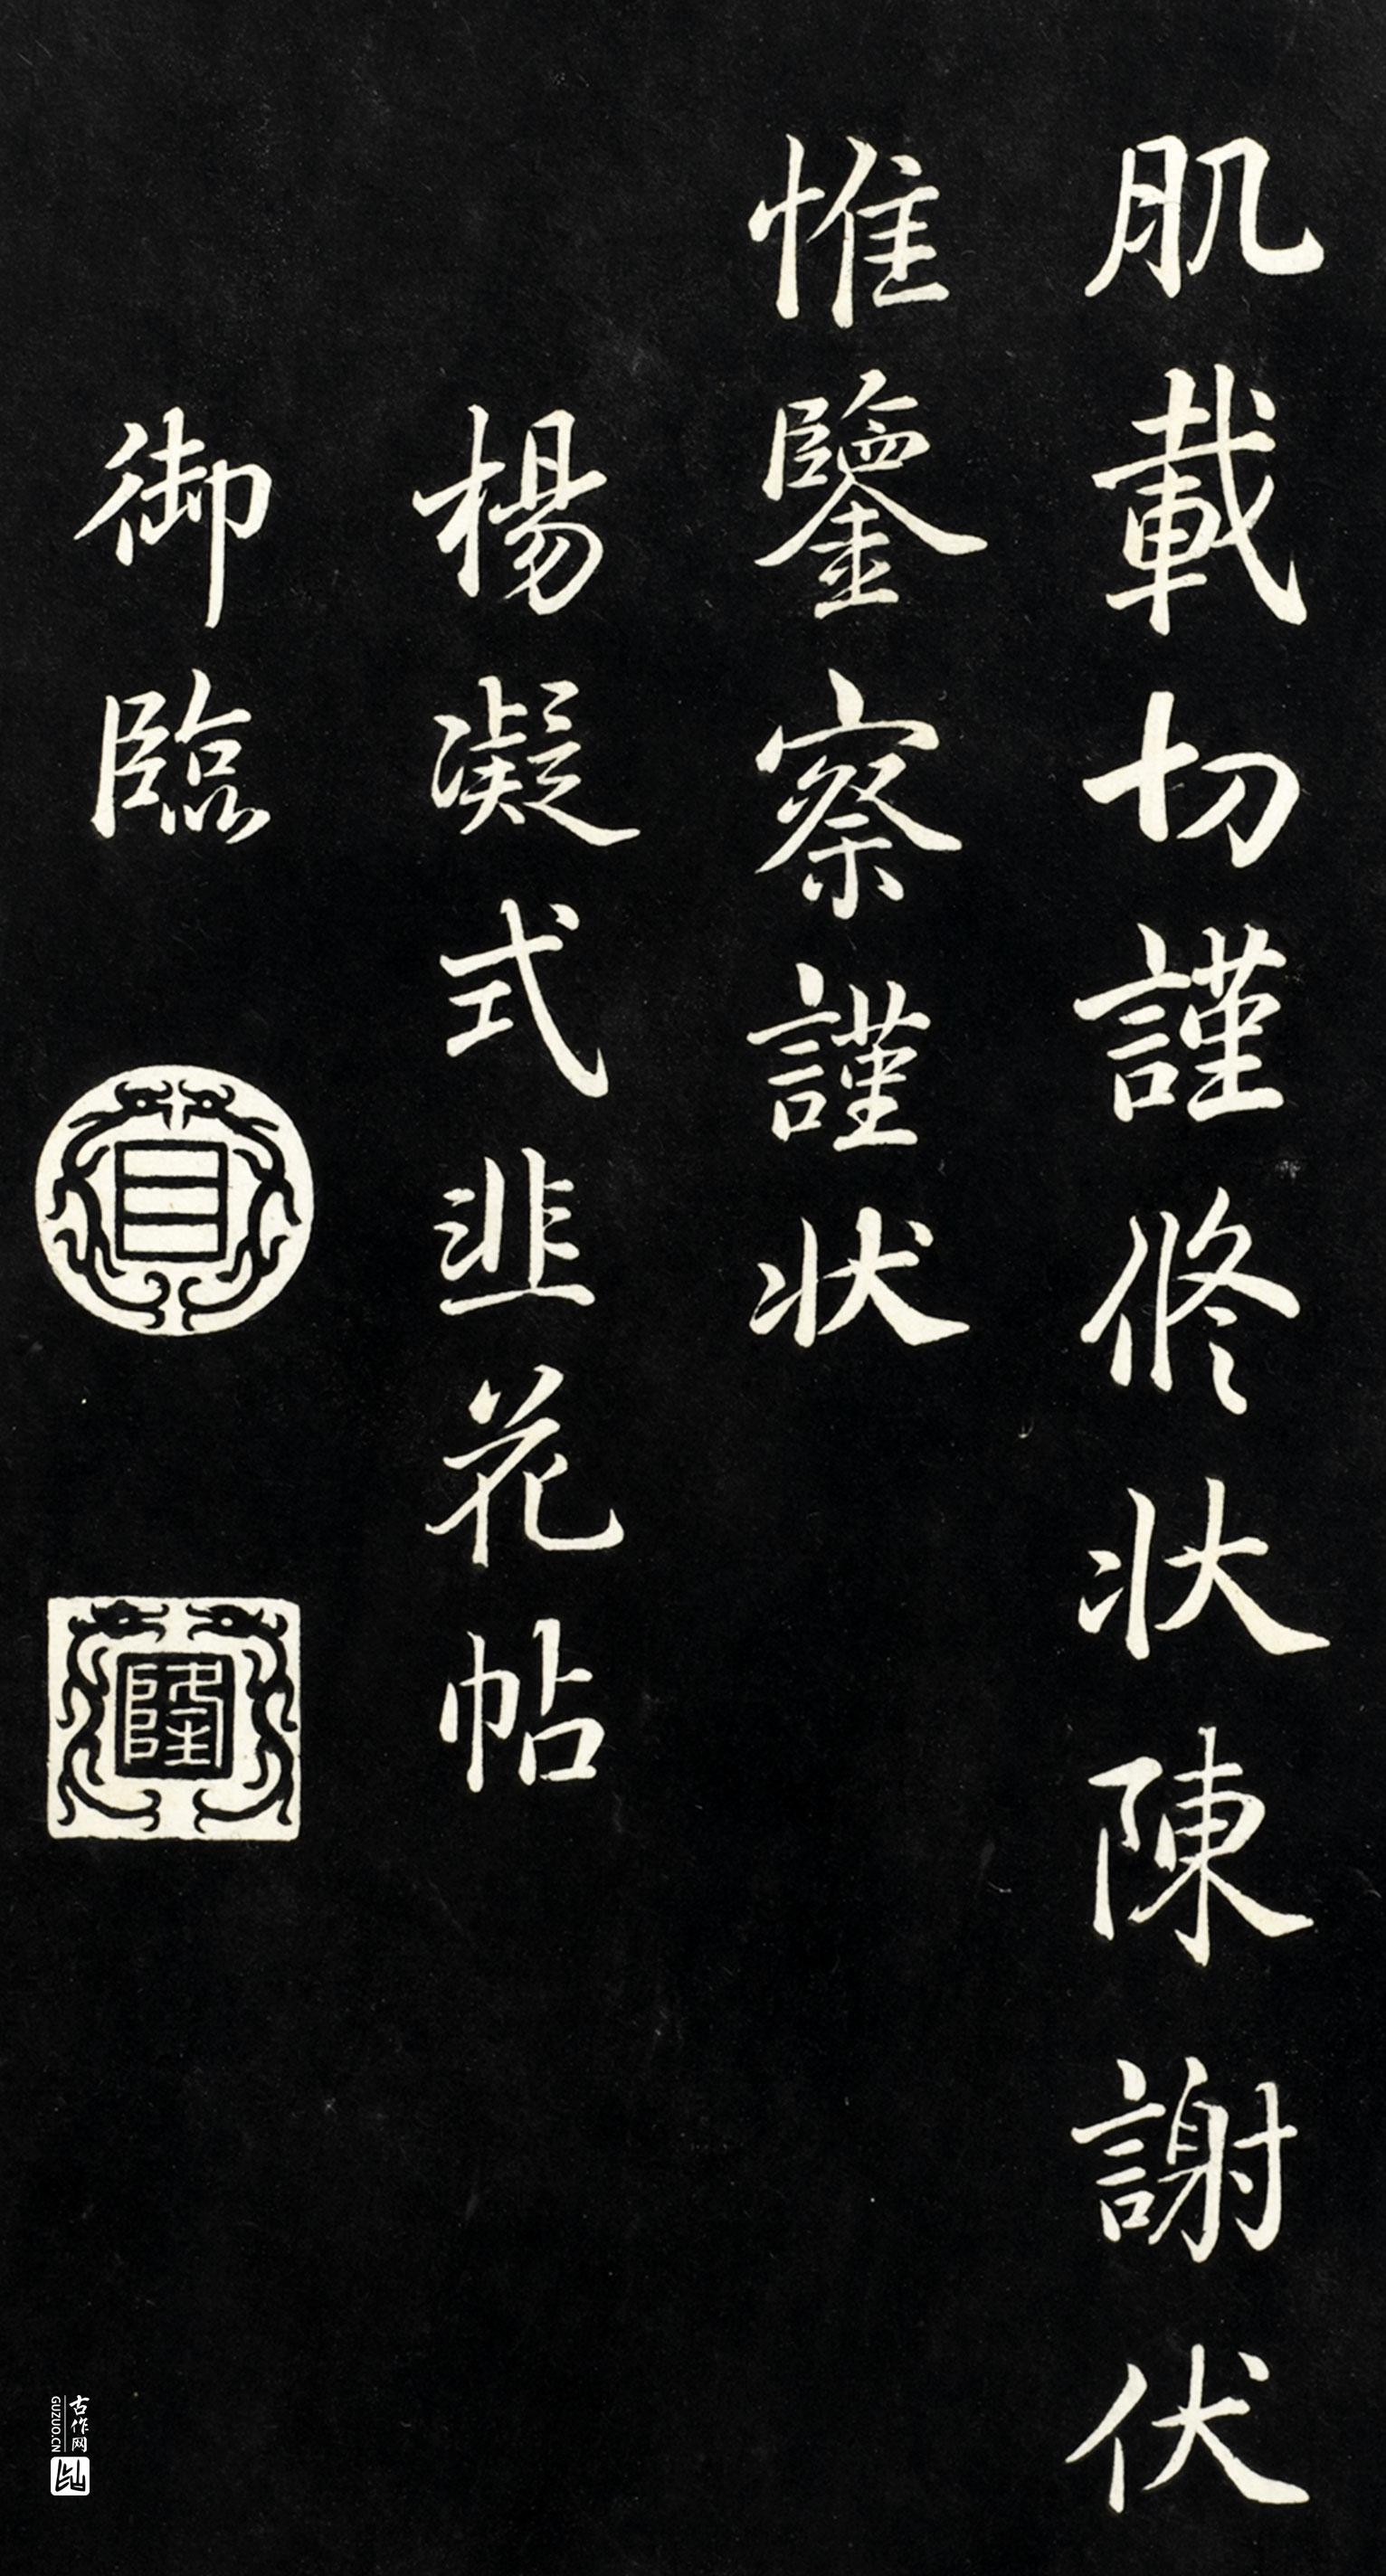 肌載切謹脩状陳謝伏
惟鑒察謹状
楊凝式韭花帖
御臨
隆
古作网
GUZUO.CN